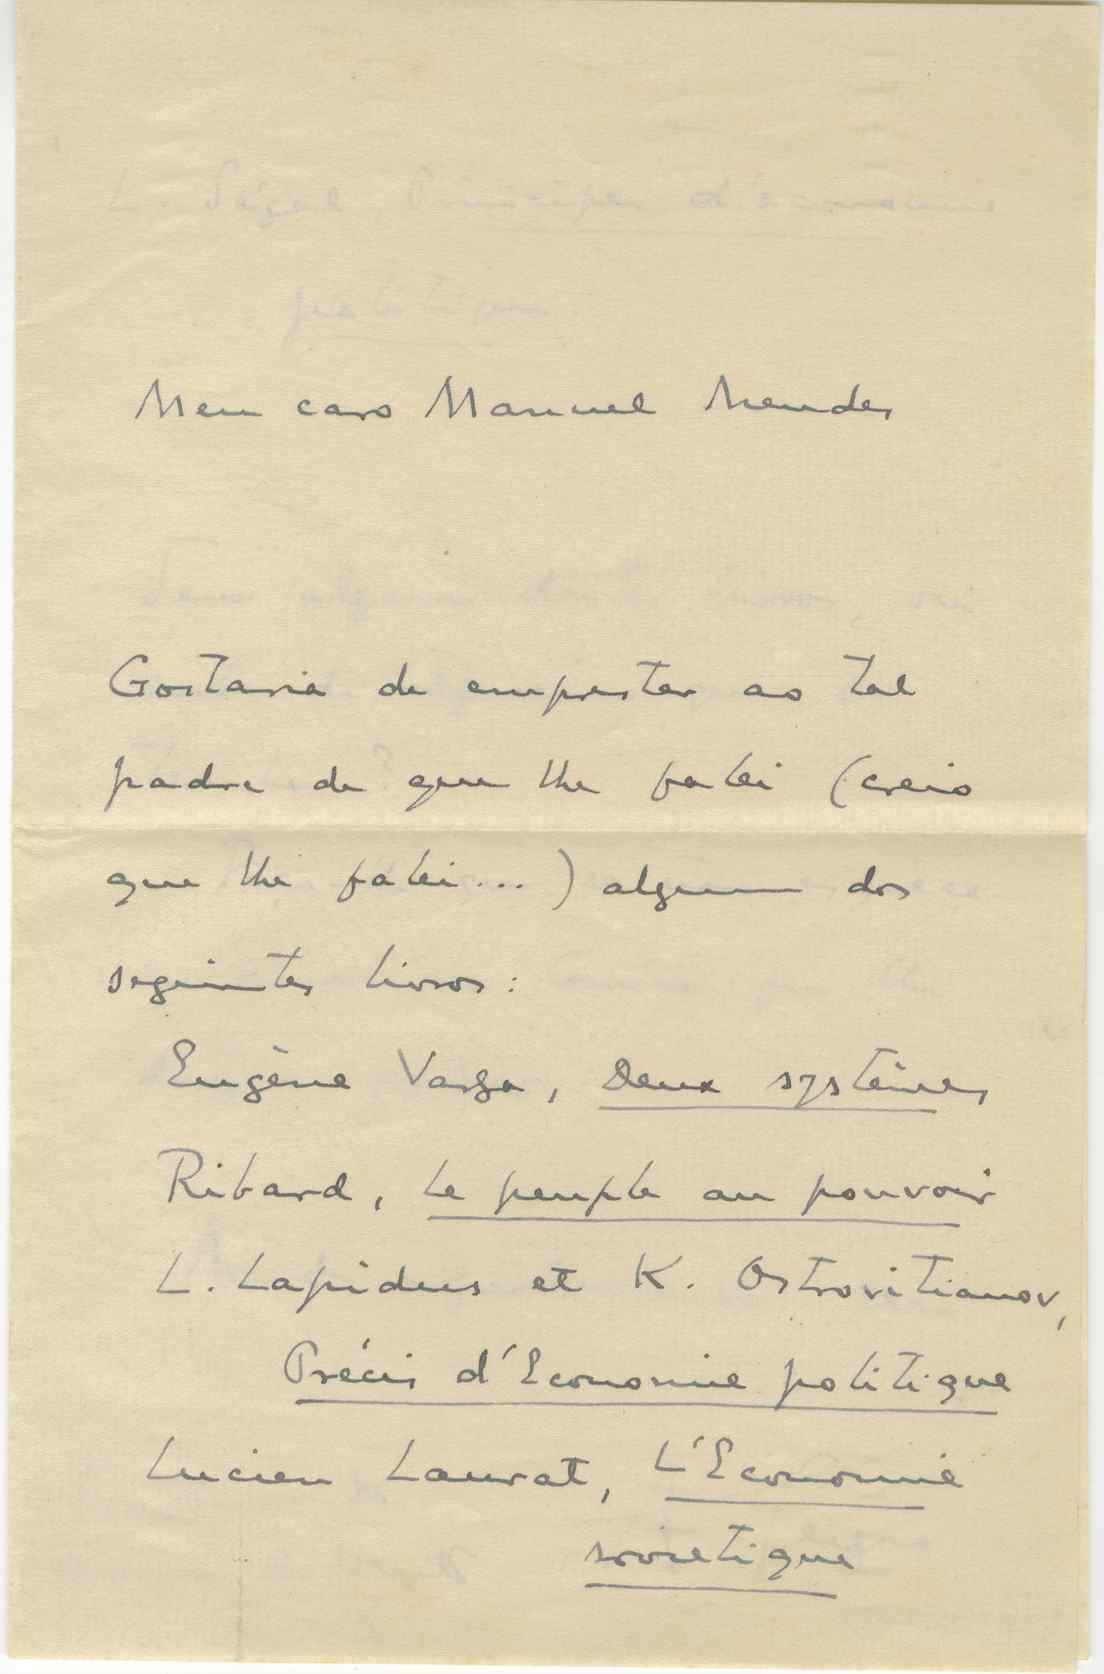 Meu caro Manuel Mendes
Gostaria de emprestar ao tal
padre de que lhe falei (creio
que lhe falei...) algum dos
seguintes livros:
Eugène Varga, Deux systèmes
Ribard, Le peuple au pouvoir
L. Lapidus et K. Ostrovitianov,
Précis d'Economie politique
Lucien Laurat, L'Economie
sovietique